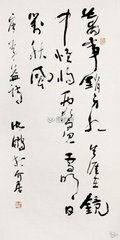 萬事銷身外生涯在鏡
中惟將兩鬢雪明日
對秋風
李益詩 沈鵬